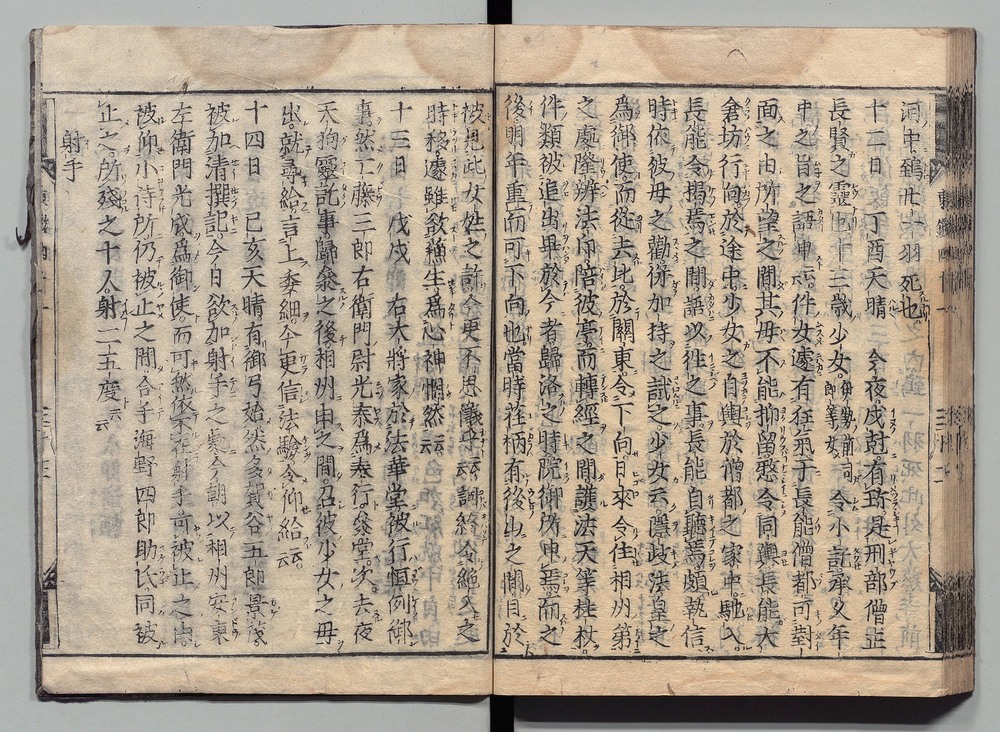 洞中鵄廿八羽死也
十二日　丁酉天晴　今夜戌尅有珎是刑部僧正
長賢之靈也十三歳少女。伊勢前司即等女　令小託承久年
中之旨之語申云。件女遽有狂氣于長能僧都可對
面之由所望之間其母不能抑留憖令同輿長能大
倉坊行向於途中少女之自輿於僧都之家中馳入
長能令揭焉之間語以徃之事長能自聽焉頗執信
時依彼母之勸併加持之試之少女云隱岐法皇之
爲御使而從去比於關東令下向日來令住相州第
之處隆辨法印陪彼亭而轉經之間護法天等柱杖
件類被追出畢於今者歸洛之時院御所申焉而之
後明年重而可下向也當時詮柄有後山之間目於
被見此女姓之許今更不思儀乎云云詞終令絶入之
時移遽雖欲蘇生爲心神惘然云云
十三日　戊戌　右大將家於法華堂被行恒例御
事然工藤三郎右衛門尉光泰爲奉行參堂矣去夜
天狗靈託事歸參之後相州申之間召彼少女之母
出就尋給言上委細今更信法驗令仰給云云
十四日　己亥天晴有御弓始然多賀谷五郎景茂
被加清撰記今日欲加射手之處今朝以相州安東
左衛門光成爲御使而可然依不在射手可被止之由
被仰小侍所仍被止之間合手海野四郎助氏同被
止之所殘之十人射二五度云云
射手